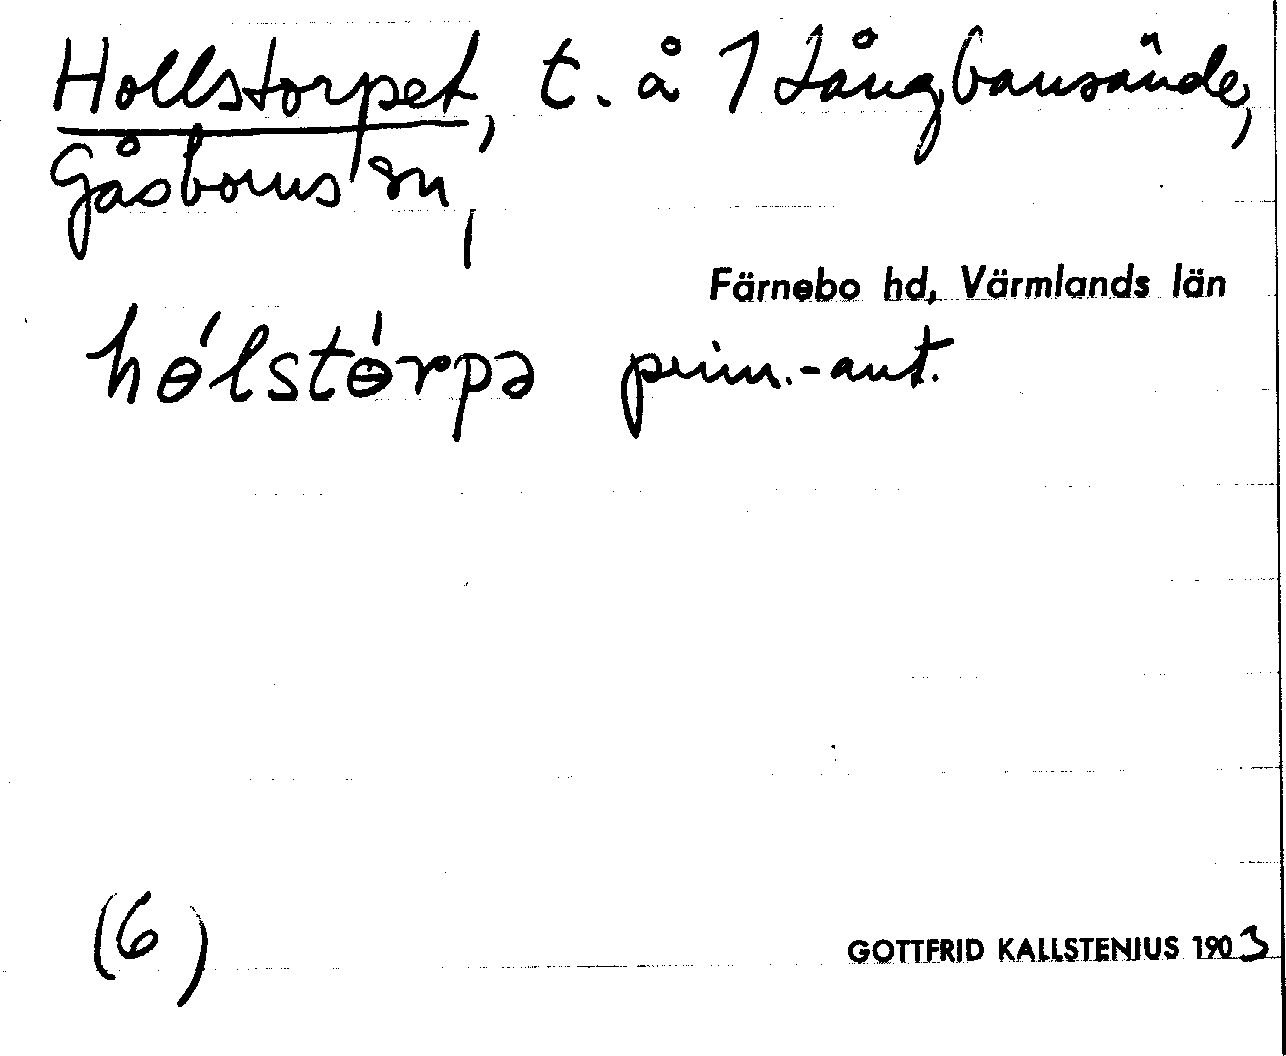 Hollstorpet, t. å 1 Långbansände,
Gåsborns sn,
Färnebo hd, Värmlands län
hɵ́lstɵ́rpə prim.-ant.
(6)
GOTTFRID KALLSTENIUS 1903